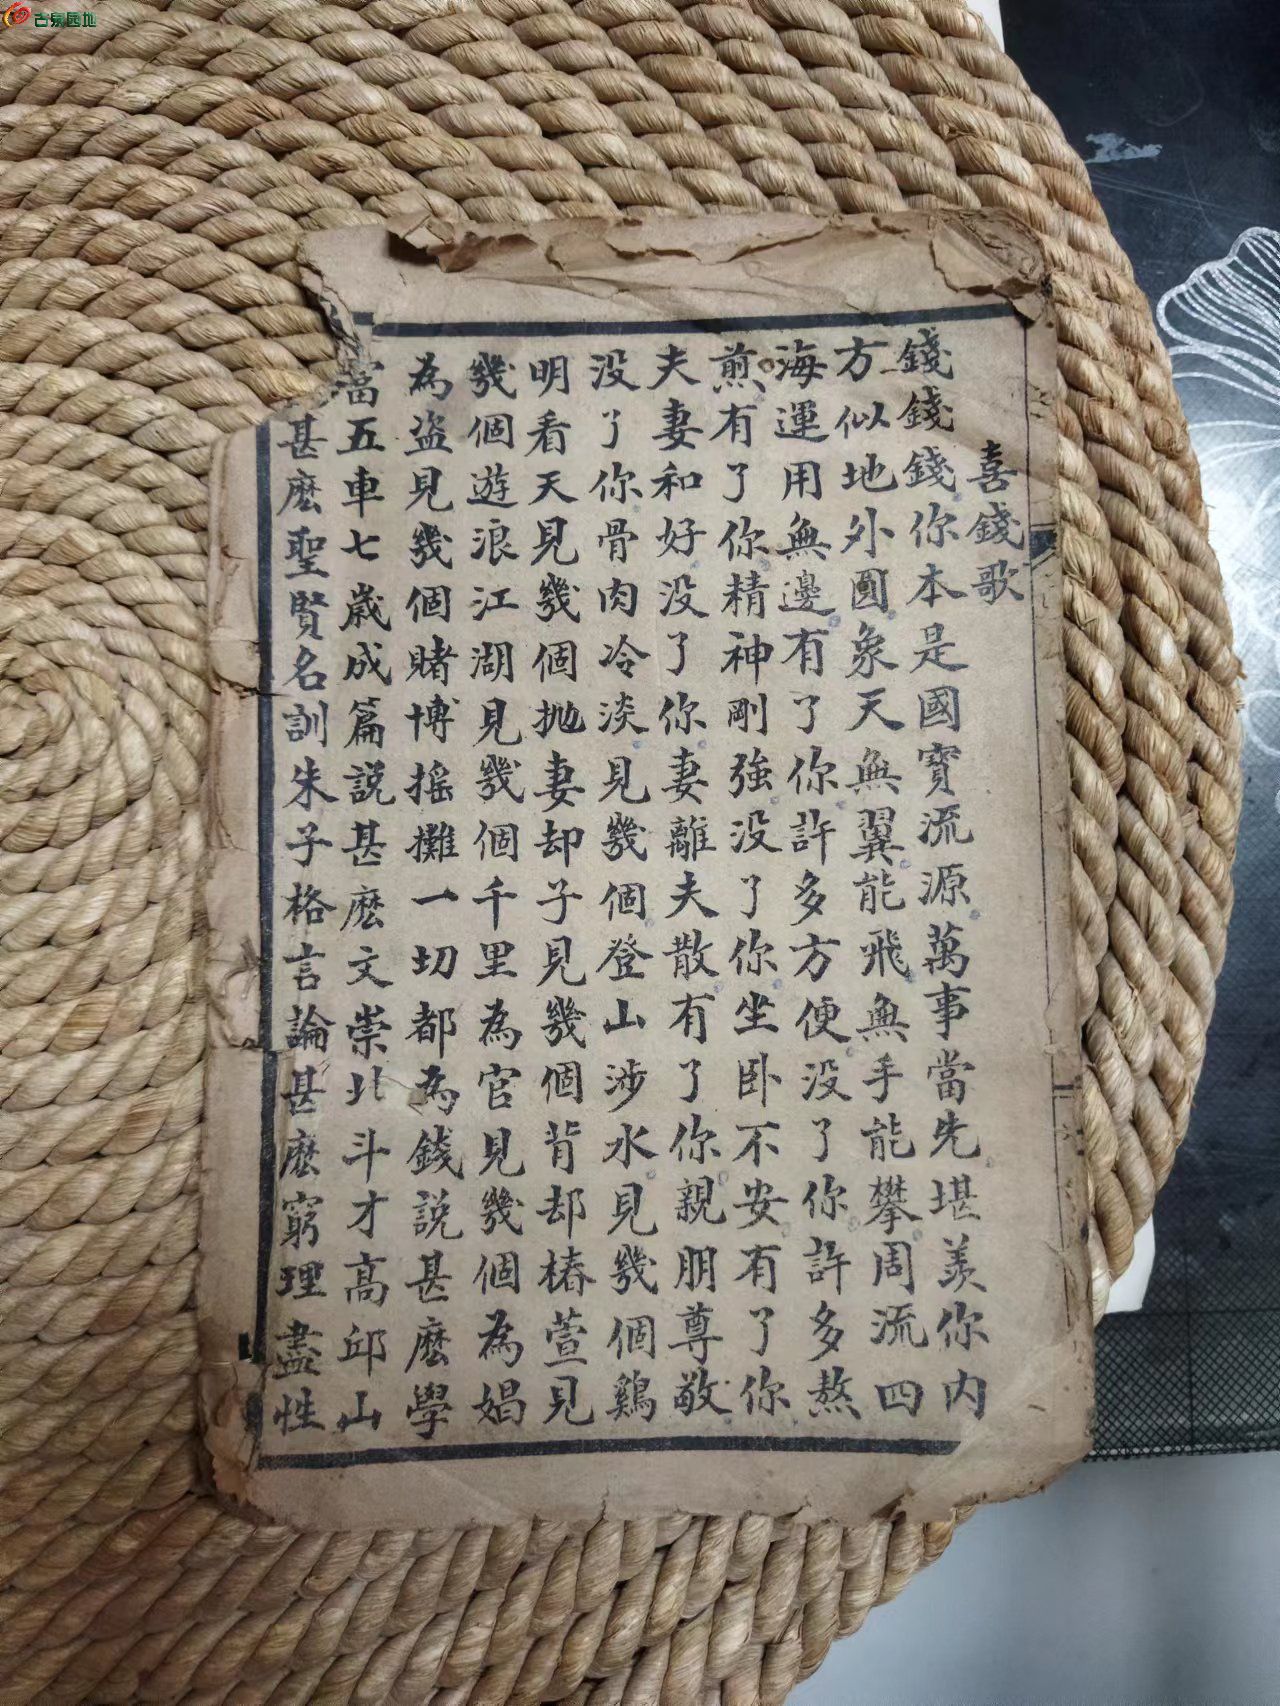 古泉园地
喜錢歌
錢錢錢你本是國寶流源萬事當先堪羨你內
方似地外圓象天無翼能飛無手能攀周流四
海運用無邊有了你許多方便没了你許多熬
煎有了你精神剛強没了你坐卧不安有了你
夫妻和好没了你妻離夫散有了你親朋尊敬
没了你骨肉冷淡見幾個登山涉水見幾個鷄
明看天見幾個抛妻却子見幾個背却椿萱見
幾個遊浪江湖見幾個千里為官見幾個為娼
為盗見幾個賭博摇攤一切都為錢説甚麽學
富五車七歲成篇説甚麽文崇北斗才高邱山
甚麽聖賢名訓朱子格言論甚麽窮理盡性